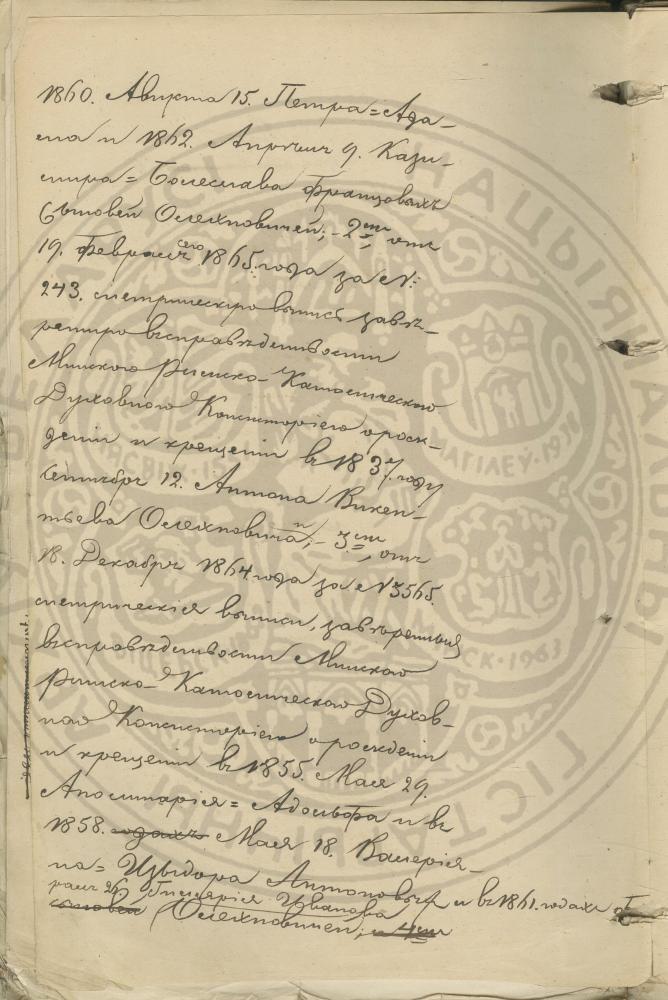 1860. Августа 15. Петра=Ада-
ма и 1862. Апреля 9. Кази-
мира=Болеслава Францовыхъ
Сыновей Олехновичей; - 2е, отъ
19. Февраля сего 1865. года за №:
243. метрическую выпись завѣ-
ренную въ справедливости
Минскою Римско-Католическою
Духовною Консисторіею о рож-
деніи и крещеніи въ 1837. году
Сентября 12. Антона Викен-
тьева Олехновича; - 3е, отъ
18. Декабря 1864. года за № 3565.
метрическія выписи, завѣренныя
въ справедливости Минскою
Римско-Католическою Духов-
ною Консисторіею о рожденіи
и крещеніи въ 1855. Мая 29.
Аполинарія=Адольфа и въ
1858. годахъ Мая 18. Валеріа-
на=Изыдора Антоновыхъ и въ 1861. годахъ
раля 26. Гилярія Иванова
сыновей Олехновичей;